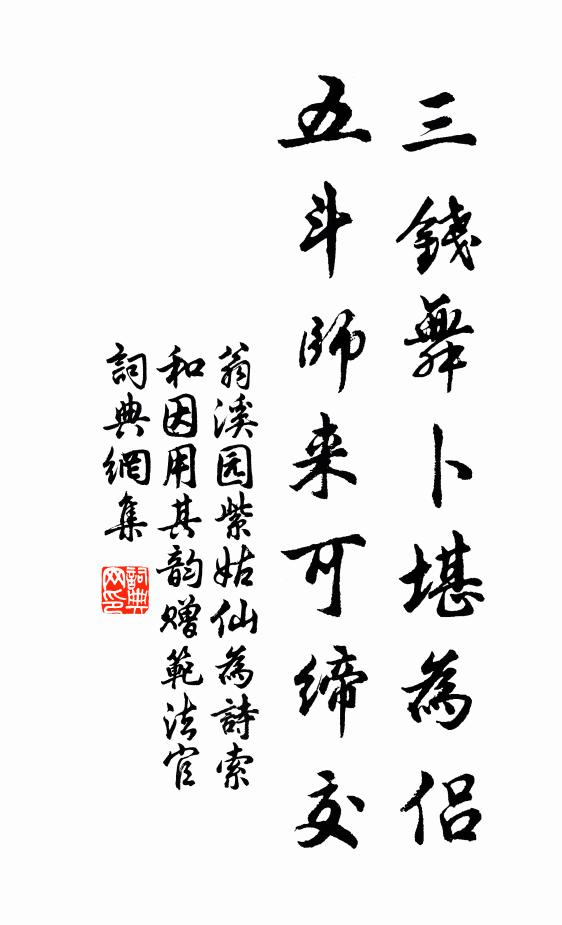 三錢舞卜堪為侶
五斗師来可締交
翁溪园紫姑仙為詩索
和因用其韵赠範法官
詞典網集
詞典網印